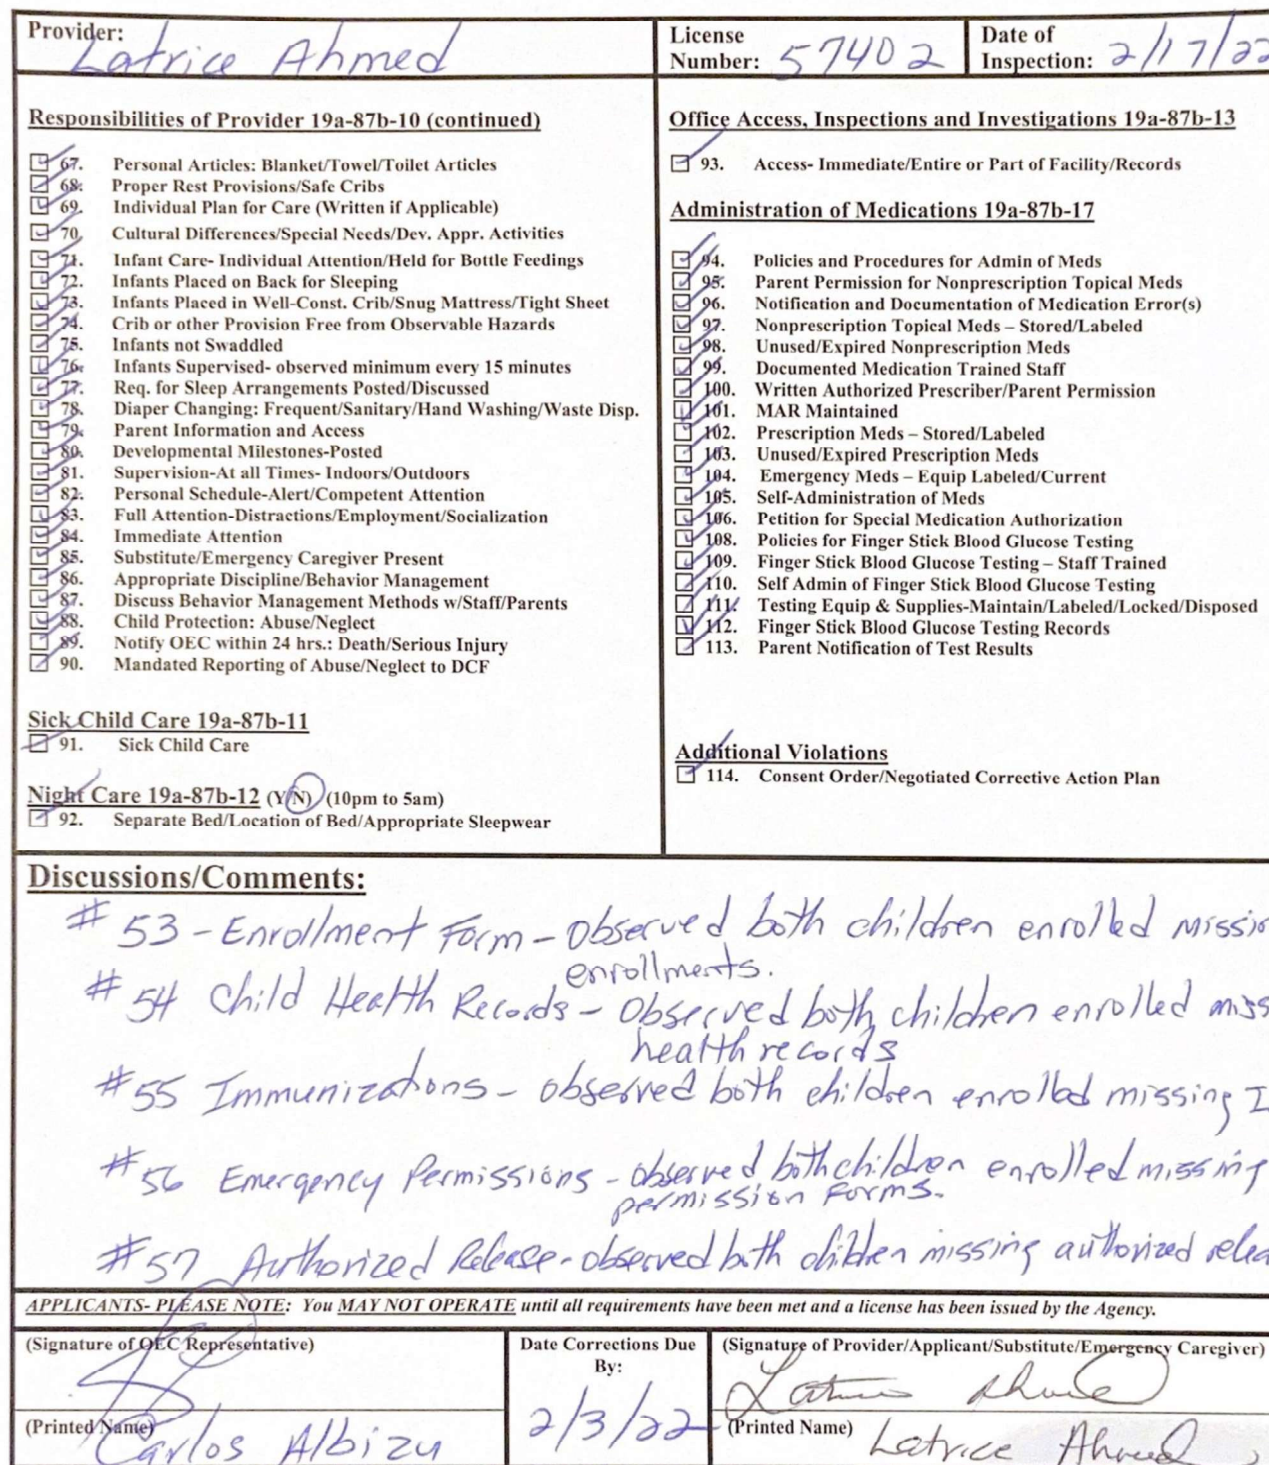 Provider: Latrice Ahmed
License Number: 57402
Date of Inspection: 2/17/22
Responsibilities of Provider 19a-87b-10 (continued)
67. Personal Articles: Blanket/Towel/Toilet Articles
68. Proper Rest Provisions/Safe Cribs
69. Individual Plan for Care (Written if Applicable)
70. Cultural Differences/Special Needs/Dev. Appr. Activities
71. Infant Care- Individual Attention/Held for Bottle Feedings
72. Infants Placed on Back for Sleeping
73. Infants Placed in Well-Const. Crib/Snug Mattress/Tight Sheet
74. Crib or other Provision Free from Observable Hazards
75. Infants not Swaddled
76. Infants Supervised- observed minimum every 15 minutes
77. Req. for Sleep Arrangements Posted/Discussed
78. Diaper Changing: Frequent/Sanitary/Hand Washing/Waste Disp.
79. Parent Information and Access
80. Developmental Milestones-Posted
81. Supervision-At all Times- Indoors/Outdoors
82. Personal Schedule-Alert/Competent Attention
83. Full Attention-Distractions/Employment/Socialization
84. Immediate Attention
85. Substitute/Emergency Caregiver Present
86. Appropriate Discipline/Behavior Management
87. Discuss Behavior Management Methods w/Staff/Parents
88. Child Protection: Abuse/Neglect
89. Notify OEC within 24 hrs.: Death/Serious Injury
90. Mandated Reporting of Abuse/Neglect to DCF
Sick Child Care 19a-87b-11
91. Sick Child Care
Night Care 19a-87b-12 (Y/N) (10pm to 5am)
92. Separate Bed/Location of Bed/Appropriate Sleepwear
Office Access, Inspections and Investigations 19a-87b-13
93. Access- Immediate/Entire or Part of Facility/Records
Administration of Medications 19a-87b-17
94. Policies and Procedures for Admin of Meds
95. Parent Permission for Nonprescription Topical Meds
96. Notification and Documentation of Medication Error(s)
97. Nonprescription Topical Meds – Stored/Labeled
98. Unused/Expired Nonprescription Meds
99. Documented Medication Trained Staff
100. Written Authorized Prescriber/Parent Permission
101. MAR Maintained
102. Prescription Meds – Stored/Labeled
103. Unused/Expired Prescription Meds
104. Emergency Meds – Equip Labeled/Current
105. Self-Administration of Meds
106. Petition for Special Medication Authorization
108. Policies for Finger Stick Blood Glucose Testing
109. Finger Stick Blood Glucose Testing – Staff Trained
110. Self Admin of Finger Stick Blood Glucose Testing
111. Testing Equip & Supplies-Maintain/Labeled/Locked/Disposed
112. Finger Stick Blood Glucose Testing Records
113. Parent Notification of Test Results
Additional Violations
114. Consent Order/Negotiated Corrective Action Plan
Discussions/Comments:
# 53 - Enrollment Form - Observed both children enrolled missi
enrollments.
# 54 Child Health Records - Observed both children enrolled miss
health records
#55 Immunizations - observed both children enrolled missing I
#56 Emergency Permissions - observed both children enrolled missing
permission forms.
#57 Authorized Release - observed both children missing authorized relea
APPLICANTS- PLEASE NOTE: You MAY NOT OPERATE until all requirements have been met and a license has been issued by the Agency.
(Signature of OEC Representative)
(Printed Name) Carlos Albizu
Date Corrections Due By:
2/3/22
(Signature of Provider/Applicant/Substitute/Emergency Caregiver)
Latrice Ahmed
(Printed Name) Latrice Ahmed